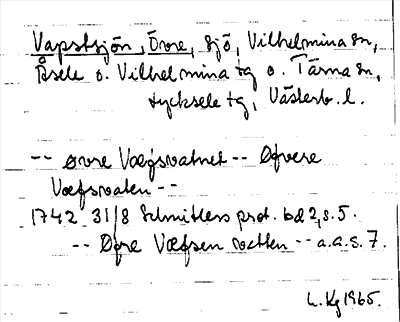 Vapstsjön, Övre, sjö, Vilhelmina sn,
Åsele o. Vilhelmina tg o. Tärna sn,
Lycksele tg, Västerb. l.
-- Øvre Wægsvatnet -- Øfvere
Væfsvaten --
1742 31/8 Schnitlers prot. bd 2, s. 5.
-- Øfre Væfsen vatten -- a.a.s. 7.
L. Kg 1965.